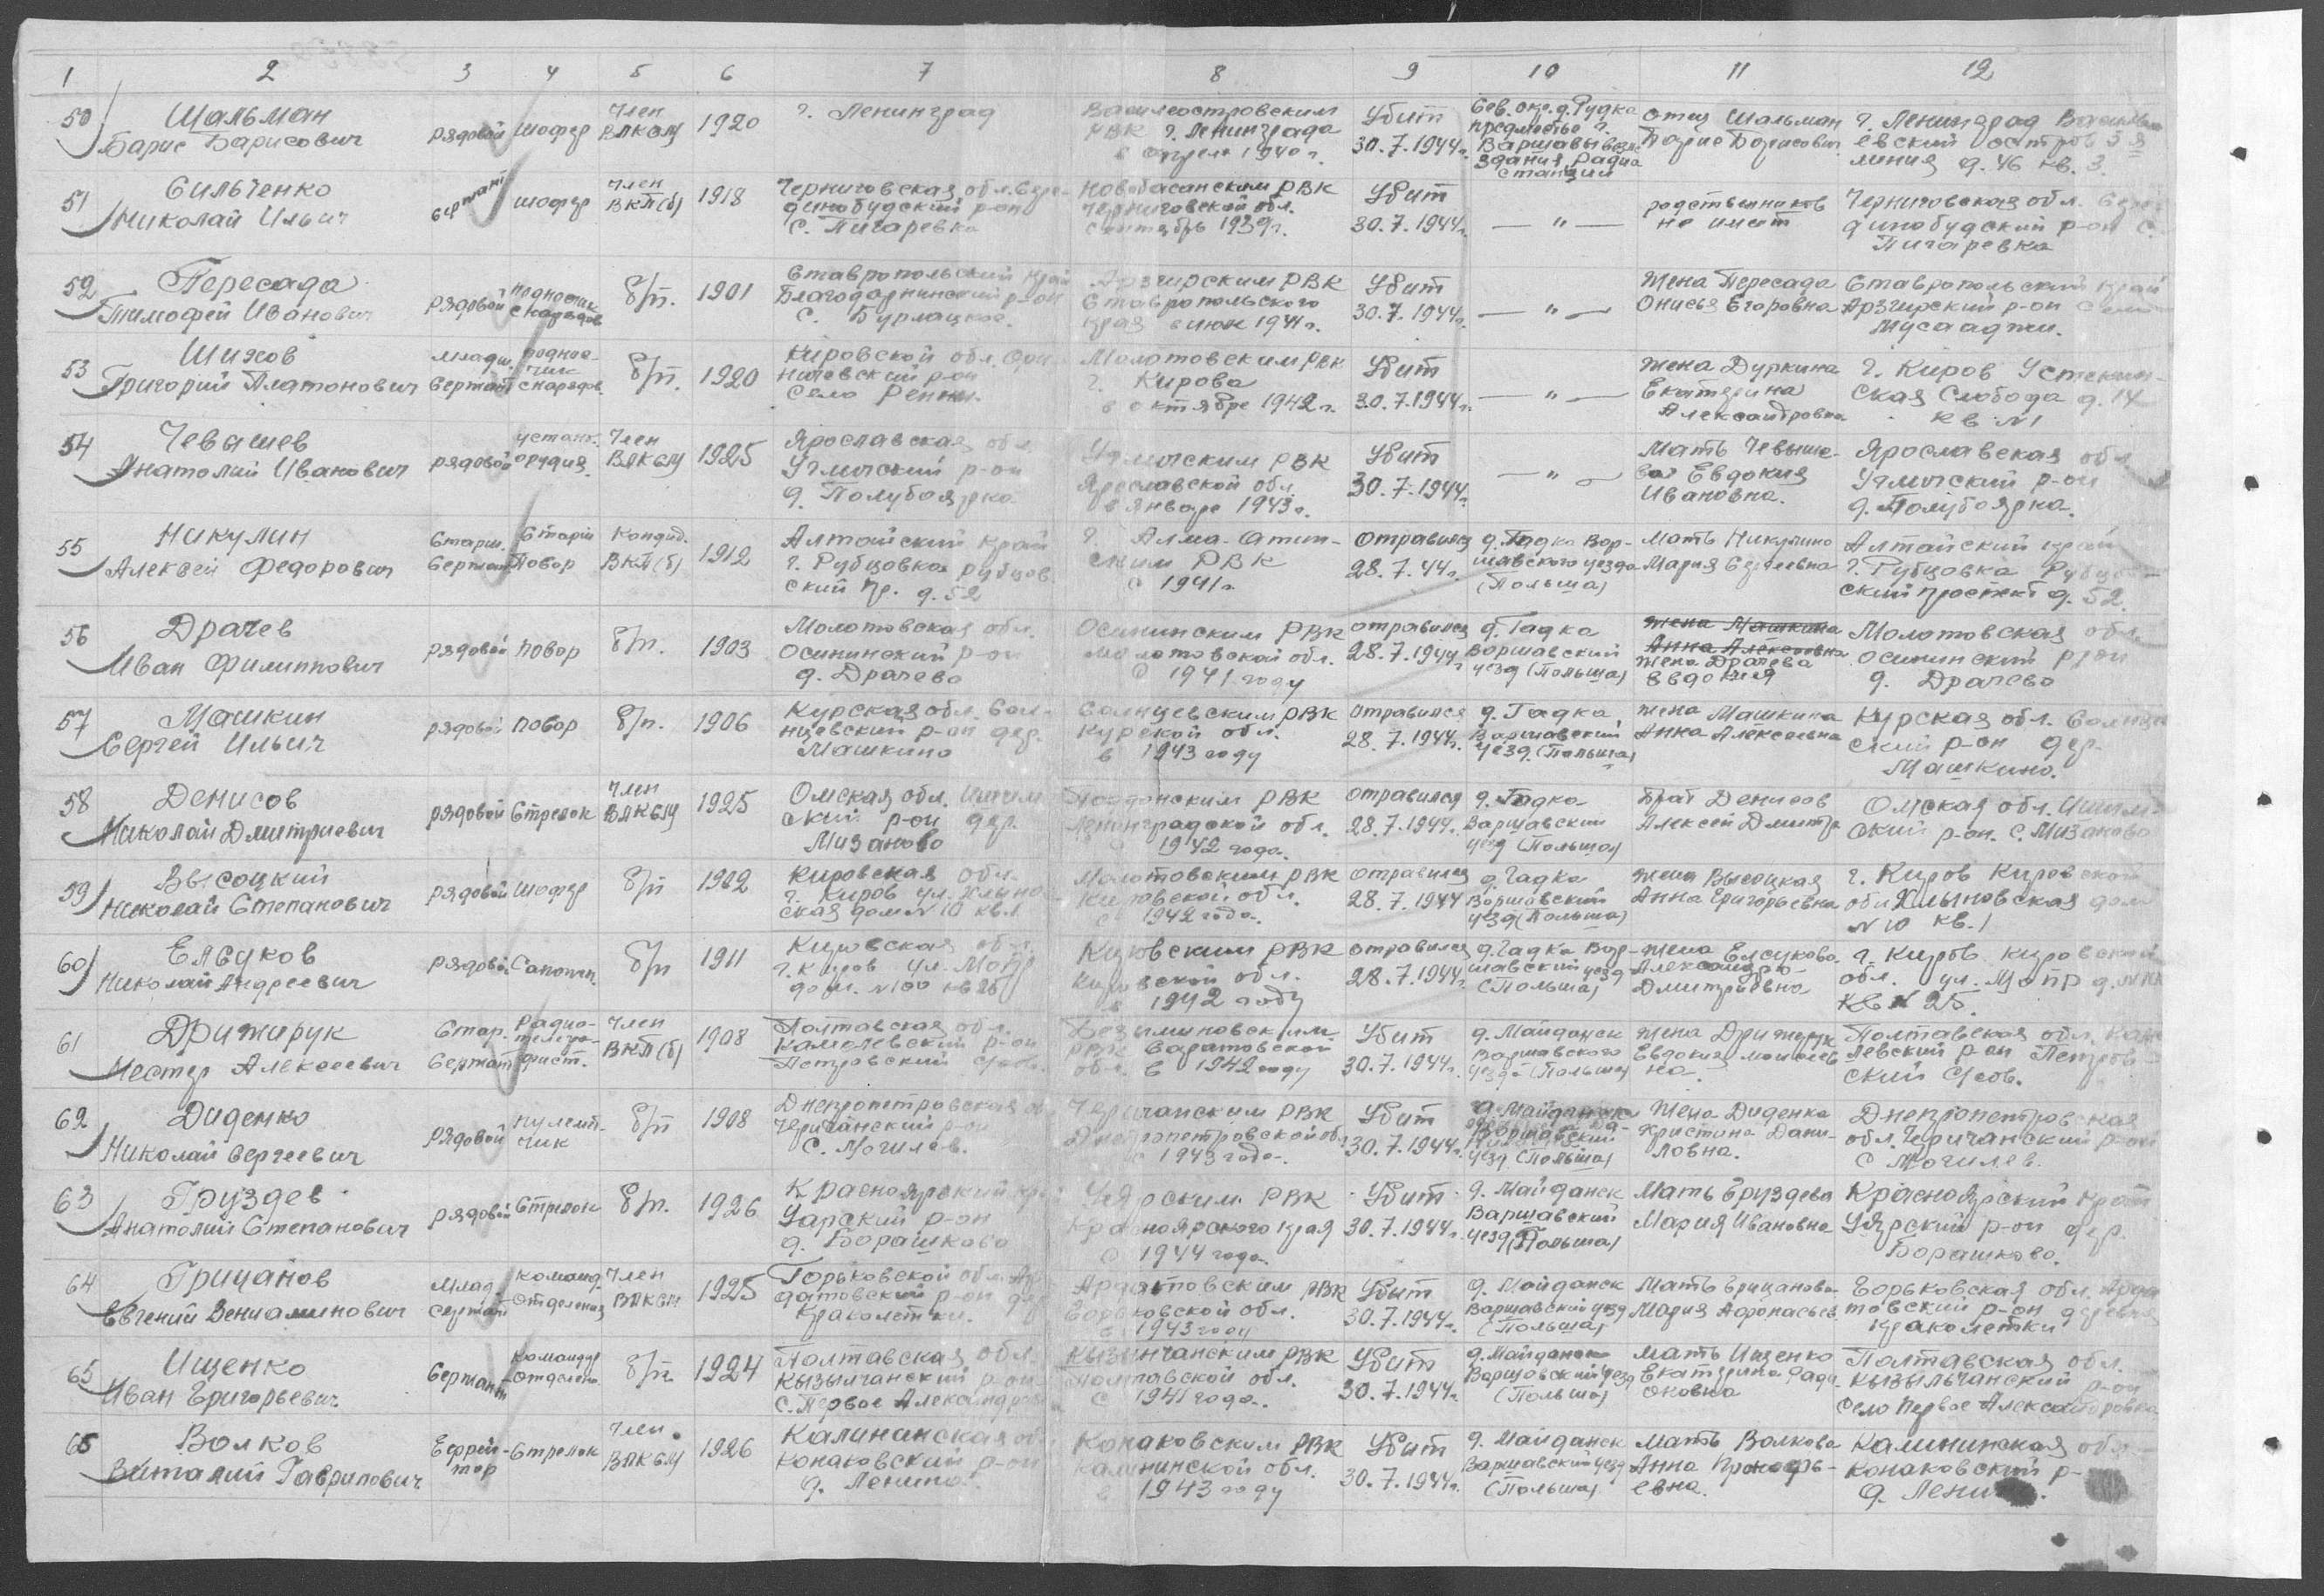 1 2 3 4 5 6 7 8 9 10 11 12
50 Шальман Борис Борисович рядовой шофер Член ВЛКСМ 1920 г. Ленинград Василеостровским РВК г. Ленинграда в апреле 1940 г. Убит 30.7.1944г. Сев. окр. д. Рудка предместье г. Варшавы возле здания Радиостанции Отец Шальман Борис Борисович г. Ленинград Васильевский остров 5я линия д. 46 кв. 3.
51 Сильченко Николай Ильич Сержант шофер Член ВКП(б) 1918 Черниговская обл. Середино-будский р-он с. Пигаревка Новобасанским РВК Черниговской обл. Сентябрь 1939г. Убит 30.7.1944г. — " — родственников не имеет Черниговская обл. Середино-будский р-он с. Пигаревка
52 Пересада Тимофей Иванович рядовой подносчик снарядов б/п. 1901 Ставропольский край Благодарнинский р-он с. Бурлацкое. Арзгирским РВК Ставропольского края в июле 1941г. Убит 30.7.1944г. — " — Жена Пересада Онисья Егоровна Ставропольский край Арзгирский р-он село Мусааджи.
53 Шихов Григорий Платонович младш. Сержант поднос-чик снарядов б/п. 1920 Кировской обл. р-он Село Молотовским РВК г. Кирова в октябре 1942г. Убит 30.7.1944г. — " — Жена Дуркина Екатерина Александровна г. Киров ская Слобода д. 14 кв №1
54 Чевышев Анатолий Иванович рядовой устан. орудия. Член ВЛКСМ 1925 Ярославская обл. Угличский р-он д. Полубоярка Угличским РВК Ярославской обл. в январе 1943г. Убит 30.7.1944г. — " — Мать Чевыше-ва Евдокия Ивановна. Ярославская обл Угличский р-он д. Полубоярка.
55 Никулин Алексей Федорович Старш. Сержант Старш Повор Кандид. ВКП(б) 1912 Алтайский край г. Рубцовка Рубцовский пр. д. 52 г. Алма-Атин-ским РВК с 1941г. отравился 28.7.44г. д. Гадка Вар-шавского уезда (Польша) Мать Никулина Мария Сергеевна Алтайский край г. Рубцовка Рубцов-ский проспект д. 52.
56 Драчев Иван Филиппович рядовой повор б/п. 1903 Молотовская обл. Осининский р-он д. Драчево Осининским РВК Молотовской обл. в 1941 году отравился 28.7.1944г. д. Гадка Варшавский уезд (Польша) Жена Машкина Анна Алексеевна Жена Драчева Евдокия Молотовская обл Осининский р-он д. Драчево
57 Машкин Сергей Ильич рядовой повор б/п. 1906 Курская обл. Сол-нцевский р-он дер. Машкино Солнцевским РВК Курской обл. в 1943 году отравился 28.7.1944г. д. Гадка, Варшавский уезд. (Польша) Жена Машкина Анна Алексеевна Курская обл. Солнцев-ский р-он дер. Машкино.
58 Денисов Николай Дмитриевич рядовой Стрелок Член ВЛКСМ 1925 Омская обл. Ишим-ский р-он дер. Мизаново РВК Ленинградской обл. 1942 года. отравился 28.7.1944г. д. Гадка Варшавский уезд (Польша) Брат Денисов Алексей Дмитр Омская обл. Ишим-ский р-он. с. Мизаново
59 Высоцкий Николай Степанович рядовой Шофер б/п 1902 Кировская обл. г. Киров ул. Хлынов-ская дом №10 кв.1 Молотовским РВК Кировской обл. с 1942 года. отравился 28.7.1944 д. Гадка Варшавский уезд (Польша) Жена Высоцкая Анна Григорьевна г. Киров Кировской обл Хлыновская дом №10 кв.1
60 Елсуков Николай Андреевич рядовой Сапожн. б/п 1911 Кировская обл. г. Киров ул. МОПР дом. №100 кв 25 Кировским РВК Кировской обл. в 1942 году отравился 28.7.1944г. д. Гадка Вар-шавский уезд (Польша) Жена Елсукова Александра Дмитриевна г. Киров Кировской обл. ул. МОПР д. кв № 25.
61 Дрижирук Нестер Алексеевич Стар. Сержант Радио-телегра-фист. Член ВКП(б) 1908 Полтавская обл. р-он Петровский с/сов. РВК Саратовской обл. в 1942 году Убит 30.7.1944г. д. Майданск Варшавского уезда (Польша) Жена Дрижирук Евдокия Моисеев-на. Полтавская обл. р-он Петров-ский с/сов.
62 Диденко Николай Сергеевич рядовой пулемет-чик б/п 1908 Днепропетровская об Черичанский р-он с. Могилев. Черичанским РВК Днепропетровской обл. с 1943 года. Убит 30.7.1944г. д. Майданск Варшавский уезд (Польша) Жена Диденко Христина Дани-ловна. Днепропетровская обл. Черичанский р-он с Могилев.
63 Груздев Анатолий Степанович рядовой Стрелок б/п. 1926 Красноярский кр Уярский р-он д. Борашково Уярским РВК Красноярского края с 1944 года Убит 30.7.1944г. д. Майданск Варшавский уезд (Польша) Мать Груздева Мария Ивановна Красноярский край Уярский р-он дер. Борашково.
64 Грицанов Евгений Вениаминович Млад Сержант команд. отделения Член ВЛКСМ 1925 Горьковской обл. Ар-датовский р-он дер Краколетки. Ардатовским РВК Горьковской обл. в 1943 году Убит 30.7.1944г. д. Майданск Варшавский уезд (Польша) Мать Грицанова Мария Афонасьев. Горьковская обл. Арда-товский р-он деревня Краколетки
65 Ищенко Иван Григорьевич Сержант Командир отделен. б/п. 1924 Полтавская обл. Кызылчанский р-он с. Первое Александров Кызылчанским РВК Полтавской обл. с 1941 года. Убит 30.7.1944г. д. Майданск Варшавский уезд (Польша) Мать Ищенко Екатерина Роди-оновна Полтавская обл. Кызыльчанский р-он село Первое Александровка
65 Волков Виталий Гаврилович Ефрей-тор Стрелок Член ВЛКСМ 1926 Калининская об Конаковский р-он д. Ленино. Конаковским РВК Калининской обл. в 1943 году Убит 30.7.1944г. д. Майданск Варшавский уезд (Польша) Мать Волкова Анна Прокофь-евна. Калининская обл. Конаковский р- д.